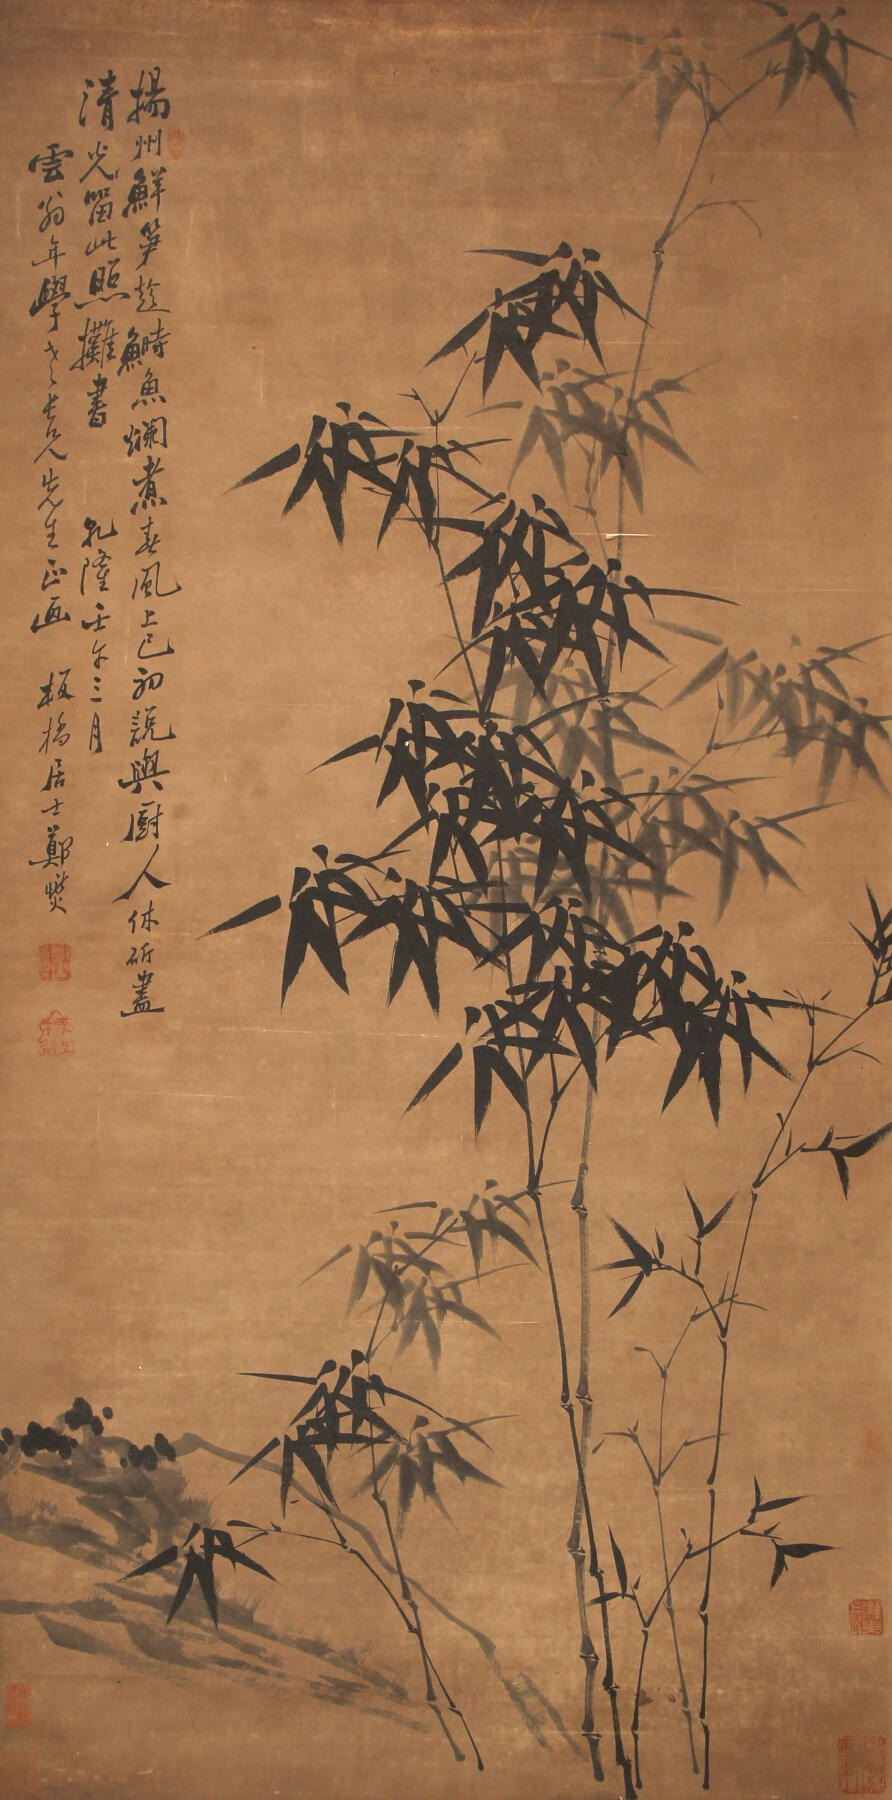 揚州鮮笋趁鰣魚爛煮春風上巳初說與廚人休斫盡
清光留此照攤書 乾隆壬午三月
雲翁年學老長兄先生正画 板橋居士鄭燮